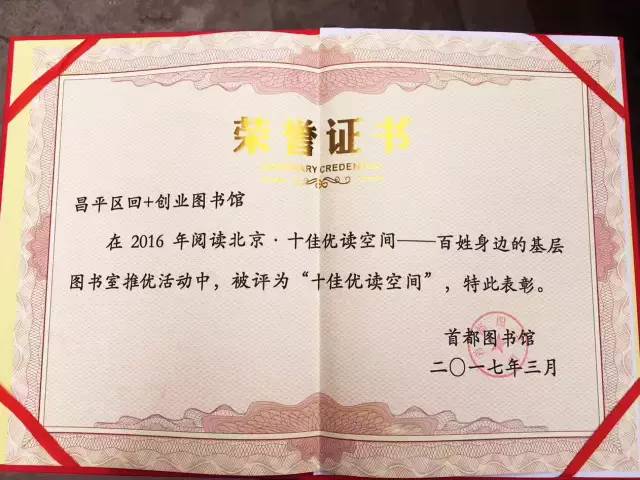 荣誉证书
HONORARY CREDENTIAL
昌平区回+创业图书馆
在 2016 年阅读北京·十佳优读空间——百姓身边的基层
图书室推优活动中，被评为“十佳优读空间”，特此表彰。
首都图书馆
二〇一七年三月